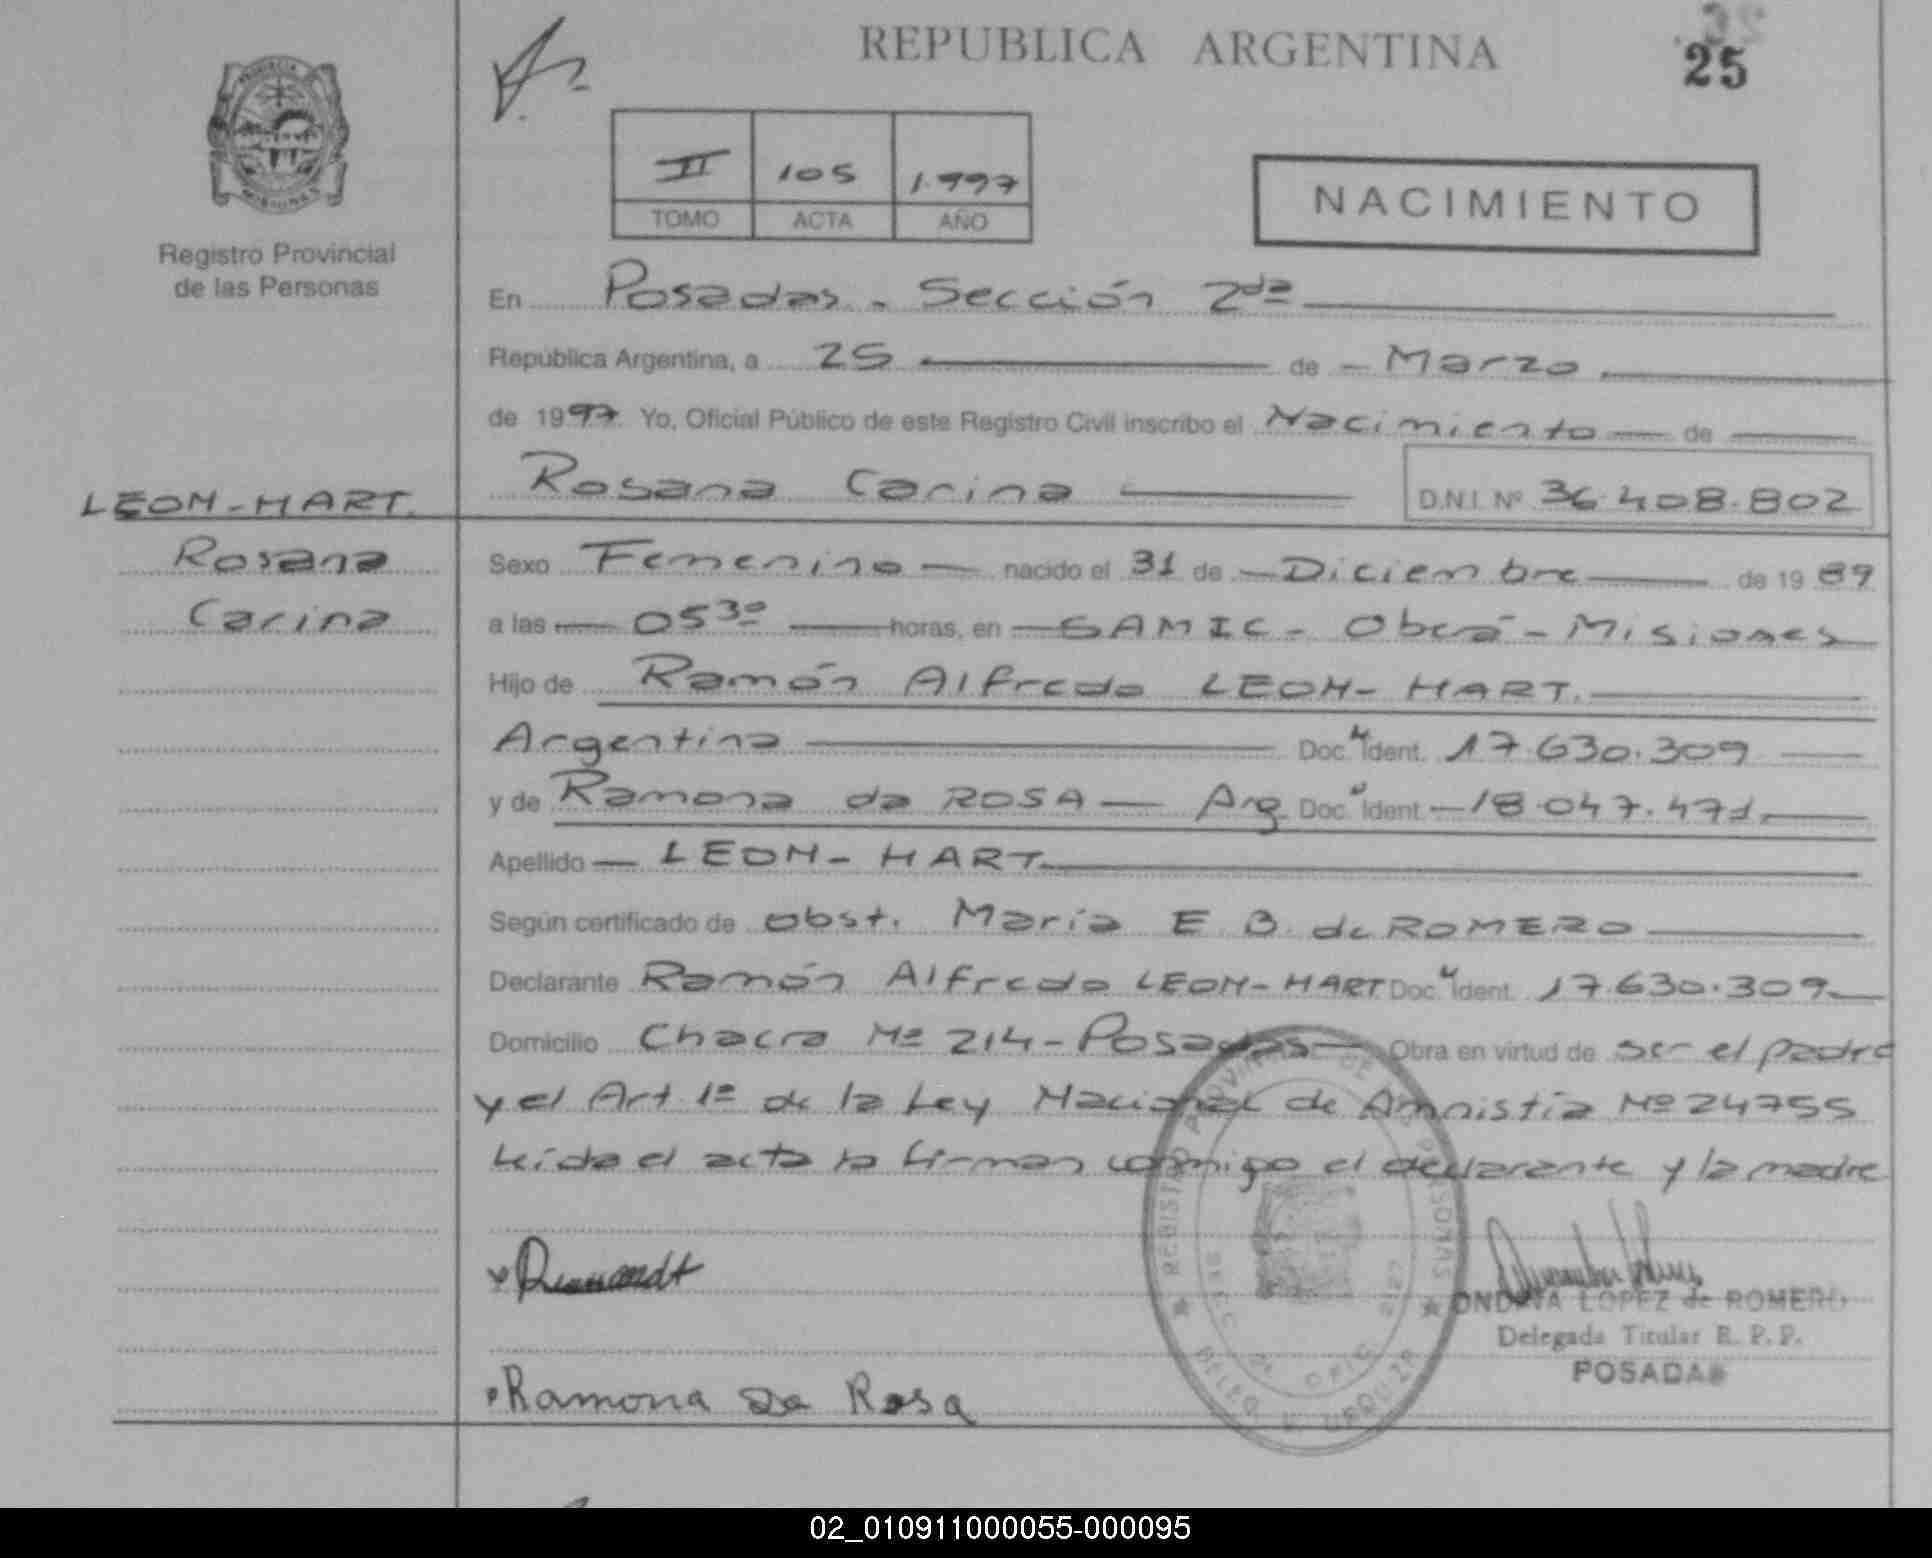 REPUBLICA ARGENTINA
25
PROVINCIA
MISIONES
Registro Provincial
de las Personas
II 105 1.997
TOMO ACTA AÑO
NACIMIENTO
En Posadas - Sección 2da
República Argentina, a 25 de Marzo
de 1997 Yo, Oficial Público de este Registro Civil inscribo el Nacimiento de
LEON-HART. Rosana Carina D.N.I. Nº 36.408.802
Rosana Sexo Femenino nacido el 31 de Diciembre de 19 89
Carina a las 05 30 horas, en SAMIC - Oberá - Misiones
Hijo de Ramón Alfredo LEON-HART.
Argentina Doc. Ident. 17.630.309
y de Ramona da ROSA - Arg Doc. Ident. 18.047.471.
Apellido LEON-HART
Según certificado de obst. María E B de ROMERO
Declarante Ramón Alfredo LEON-HART Doc. Ident. 17.630.309
Domicilio Chacra Nº 214 - Posadas Obra en virtud de ser el padre
y el Art 1º de la Ley Nacional de Amnistía Nº 24755
Leída el acta la firman conmigo el declarante y la madre
LOPEZ de ROMERO
Delegada Titular R. P. P.
POSADAS
Ramona Da Rosa
02_010911000055-000095